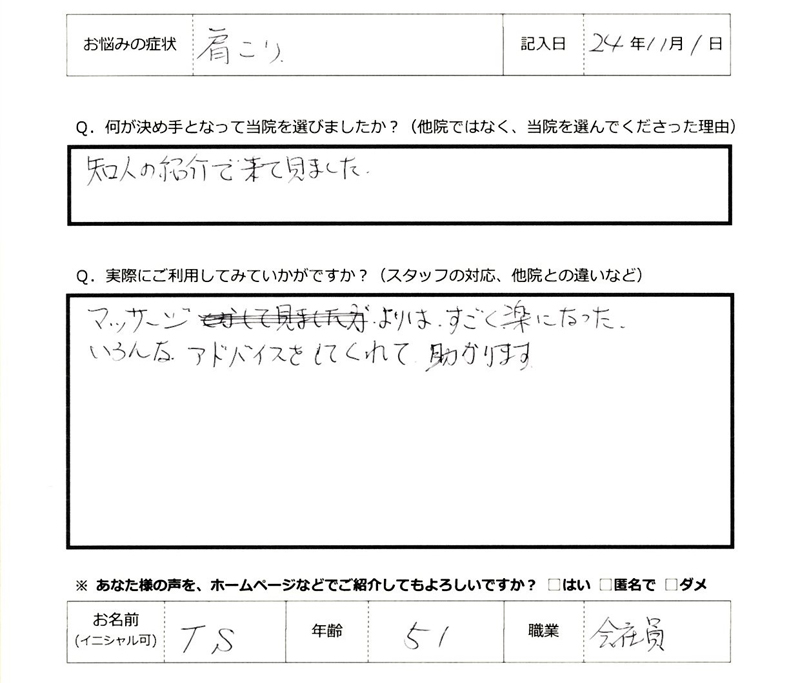 お悩みの症状 肩こり. 記入日 24年11月1日
Q. 何が決め手となって当院を選びましたか？（他院ではなく、当院を選んでくださった理由）
知人の紹介で来て見ました.
Q. 実際にご利用してみていかがですか？（スタッフの対応、他院との違いなど）
マッサージ よりは.すごく楽になった.
いろんな.アドバイスをしてくれて.助かります
※ あなた様の声を、ホームページなどでご紹介してもよろしいですか？ □はい □匿名で □ダメ
お名前 (イニシャル可) T.S 年齢 51 職業 会社員